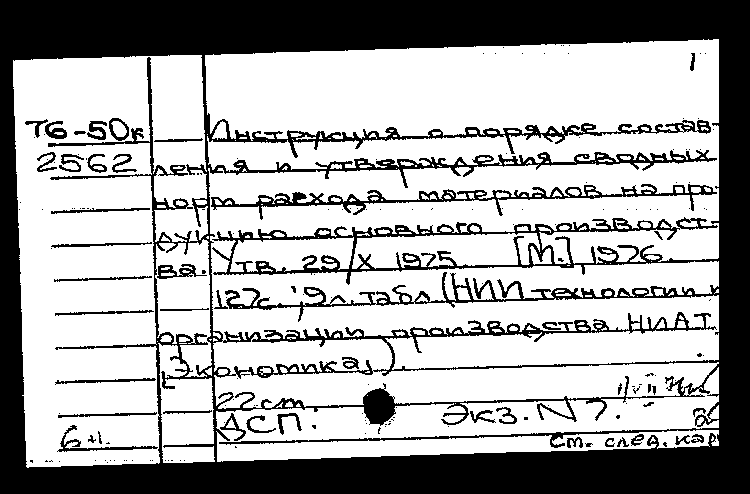 1
Т6-50к Инструкция о порядке состав-
2562 ления и утверждения сводных
норм расхода материалов на про-
дукцию основного производст-
ва. Утв. 29/X 1975. [М.], 1976.
127с.; 9л. табл (НИИ технологии и
организации производства НИАТ.
Экономика).
22 см.
ДСП. Экз. N 7.
6 н.
Ст. след. кар